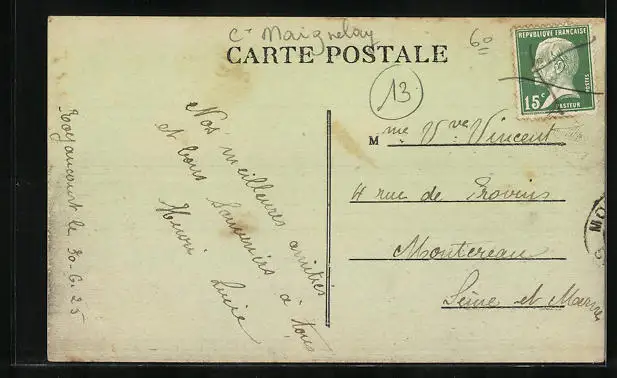 Cᵗ Maignelay
60
CARTE POSTALE
13
REPUBLIQUE FRANÇAISE
15ᶜ
POSTES
PASTEUR
Royaucourt le 30-6-25
Nos meilleures amitiés
et bons Souvenirs à tous
Henri Lucie
Mme Vve Vincent
4 rue de Provins
Montereau
Seine et Marne
MO